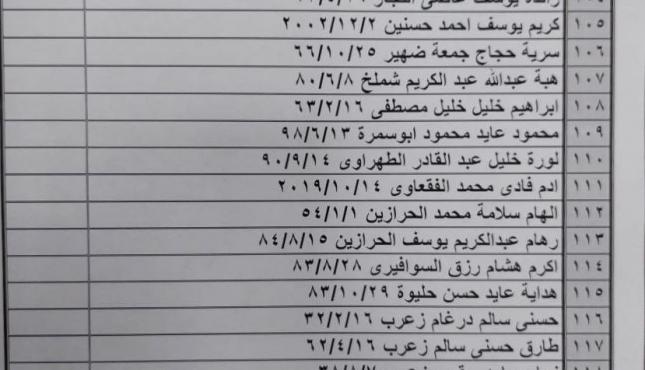 ١٠٥ كريم يوسف احمد حسنين ٢٠٠٢/١٢/٢
١٠٦ سرية حجاج جمعة ضهير ٦٦/١٠/٢٥
١٠٧ هبة عبدالله عبد الكريم شملخ ٨٠/٦/٨
١٠٨ ابراهيم خليل خليل مصطفى ٦٣/٢/١٦
١٠٩ محمود عايد محمود ابوسمرة ٩٨/٦/١٣
١١٠ لورة خليل عبد القادر الطهراوى ٩٠/٩/١٤
١١١ ادم فادى محمد الفقعاوى ٢٠١٩/١٠/١٤
١١٢ الهام سلامة محمد الحرازين ٥٤/١/١
١١٣ رهام عبدالكريم يوسف الحرازين ٨٤/٨/١٥
١١٤ اكرم هشام رزق السوافيرى ٨٣/٨/٢٨
١١٥ هداية عايد حسن حليوة ٨٣/١٠/٢٩
١١٦ حسنى سالم درغام زعرب ٣٢/٢/١٦
١١٧ طارق حسنى سالم زعرب ٦٢/٤/١٦